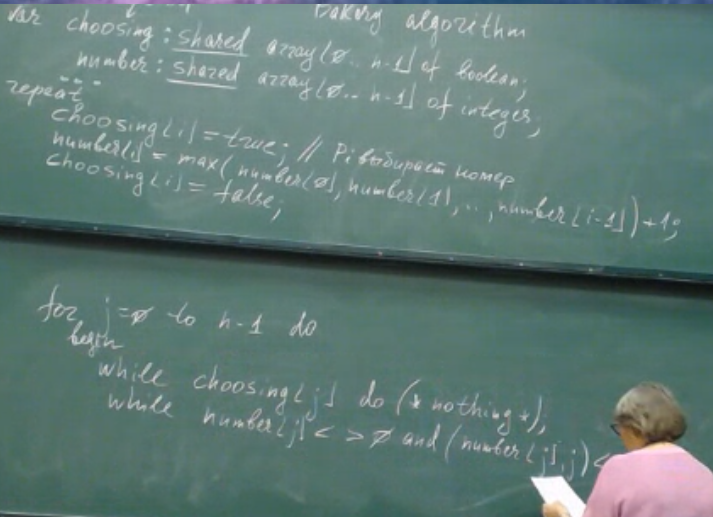 Bakery algorithm
var choosing : shared array [0.. n-1] of boolean;
number : shared array [0.. n-1] of integer;
repeat
choosing[i] = true; // Pi выбирает номер
number[i] = max(number[0], number[1], .., number[i-1]) + 1;
choosing[i] = false;
for j=0 to n-1 do
begin
while choosing[j] do (* nothing *);
while number[j] < > 0 and (number[j], j) <